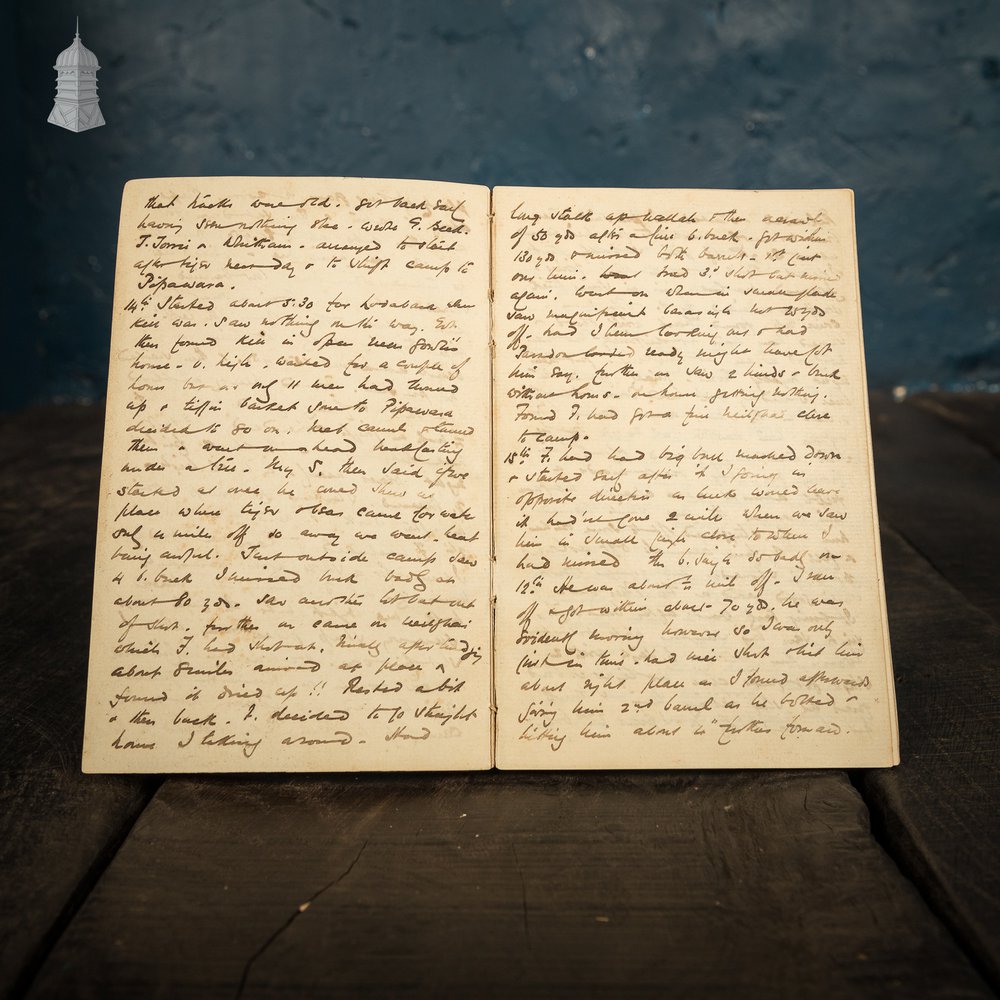 that tracks were old. Got back early
having seen nothing else. Wrote G. Reed.
J. Torrie & Whitham. arranged to start
after tiger next day & to shift camp to
Pipawara.
14th Started about 5.30 for Kodabara where
kill was. Saw nothing on the way. Got
there found kill in open near
house. v. high. waited for a couple of
hours but as only 11 men had turned
up & tiffin basket gone to Pipawara
decided to go on. Met camels & turned
them & went on ahead
under a tree. S. then said if we
started at once he could show us
place where tiger always came for water
only a mile off so away we went. heat
being awful. Just outside camp saw
4 b. buck I missed buck badly at
about 80 yds. Saw another lot but out
of shot. further on came on neilghai
which F. had shot at. Finally after
about 8 miles arrived at place &
found it dried up!! Rested a bit
& then back. F. decided to go straight
home I taking around. Had
long stalk up nullah & then a crawl
of 50 yds after a fine b. buck. Got within
130 yds & missed both barrels. 1st just
over him. tried 3rd shot but missed
again. Went on when in same glade
saw magnificent not 20 yds
off. had I been looking out & had
loaded ready might have got
him easy. further on saw 2 hinds & buck
without horns. on home getting nothing.
Found F. had got a fine neilghai close
to camp.
15th F. had had big bull marked down
& started early after it I going in
opposite direction as luck would have
it had'nt gone 2 miles when we saw
him in small close to where I
had missed the b. so badly on
12th He was about ½ mile off. I ran
off & got within about 70 yds. he was
evidently moving however so I was only
just in time. had nice shot & hit him
about right place as I found afterwards
giving him 2nd barrel as he bolted &
hitting him about 10" further forward.